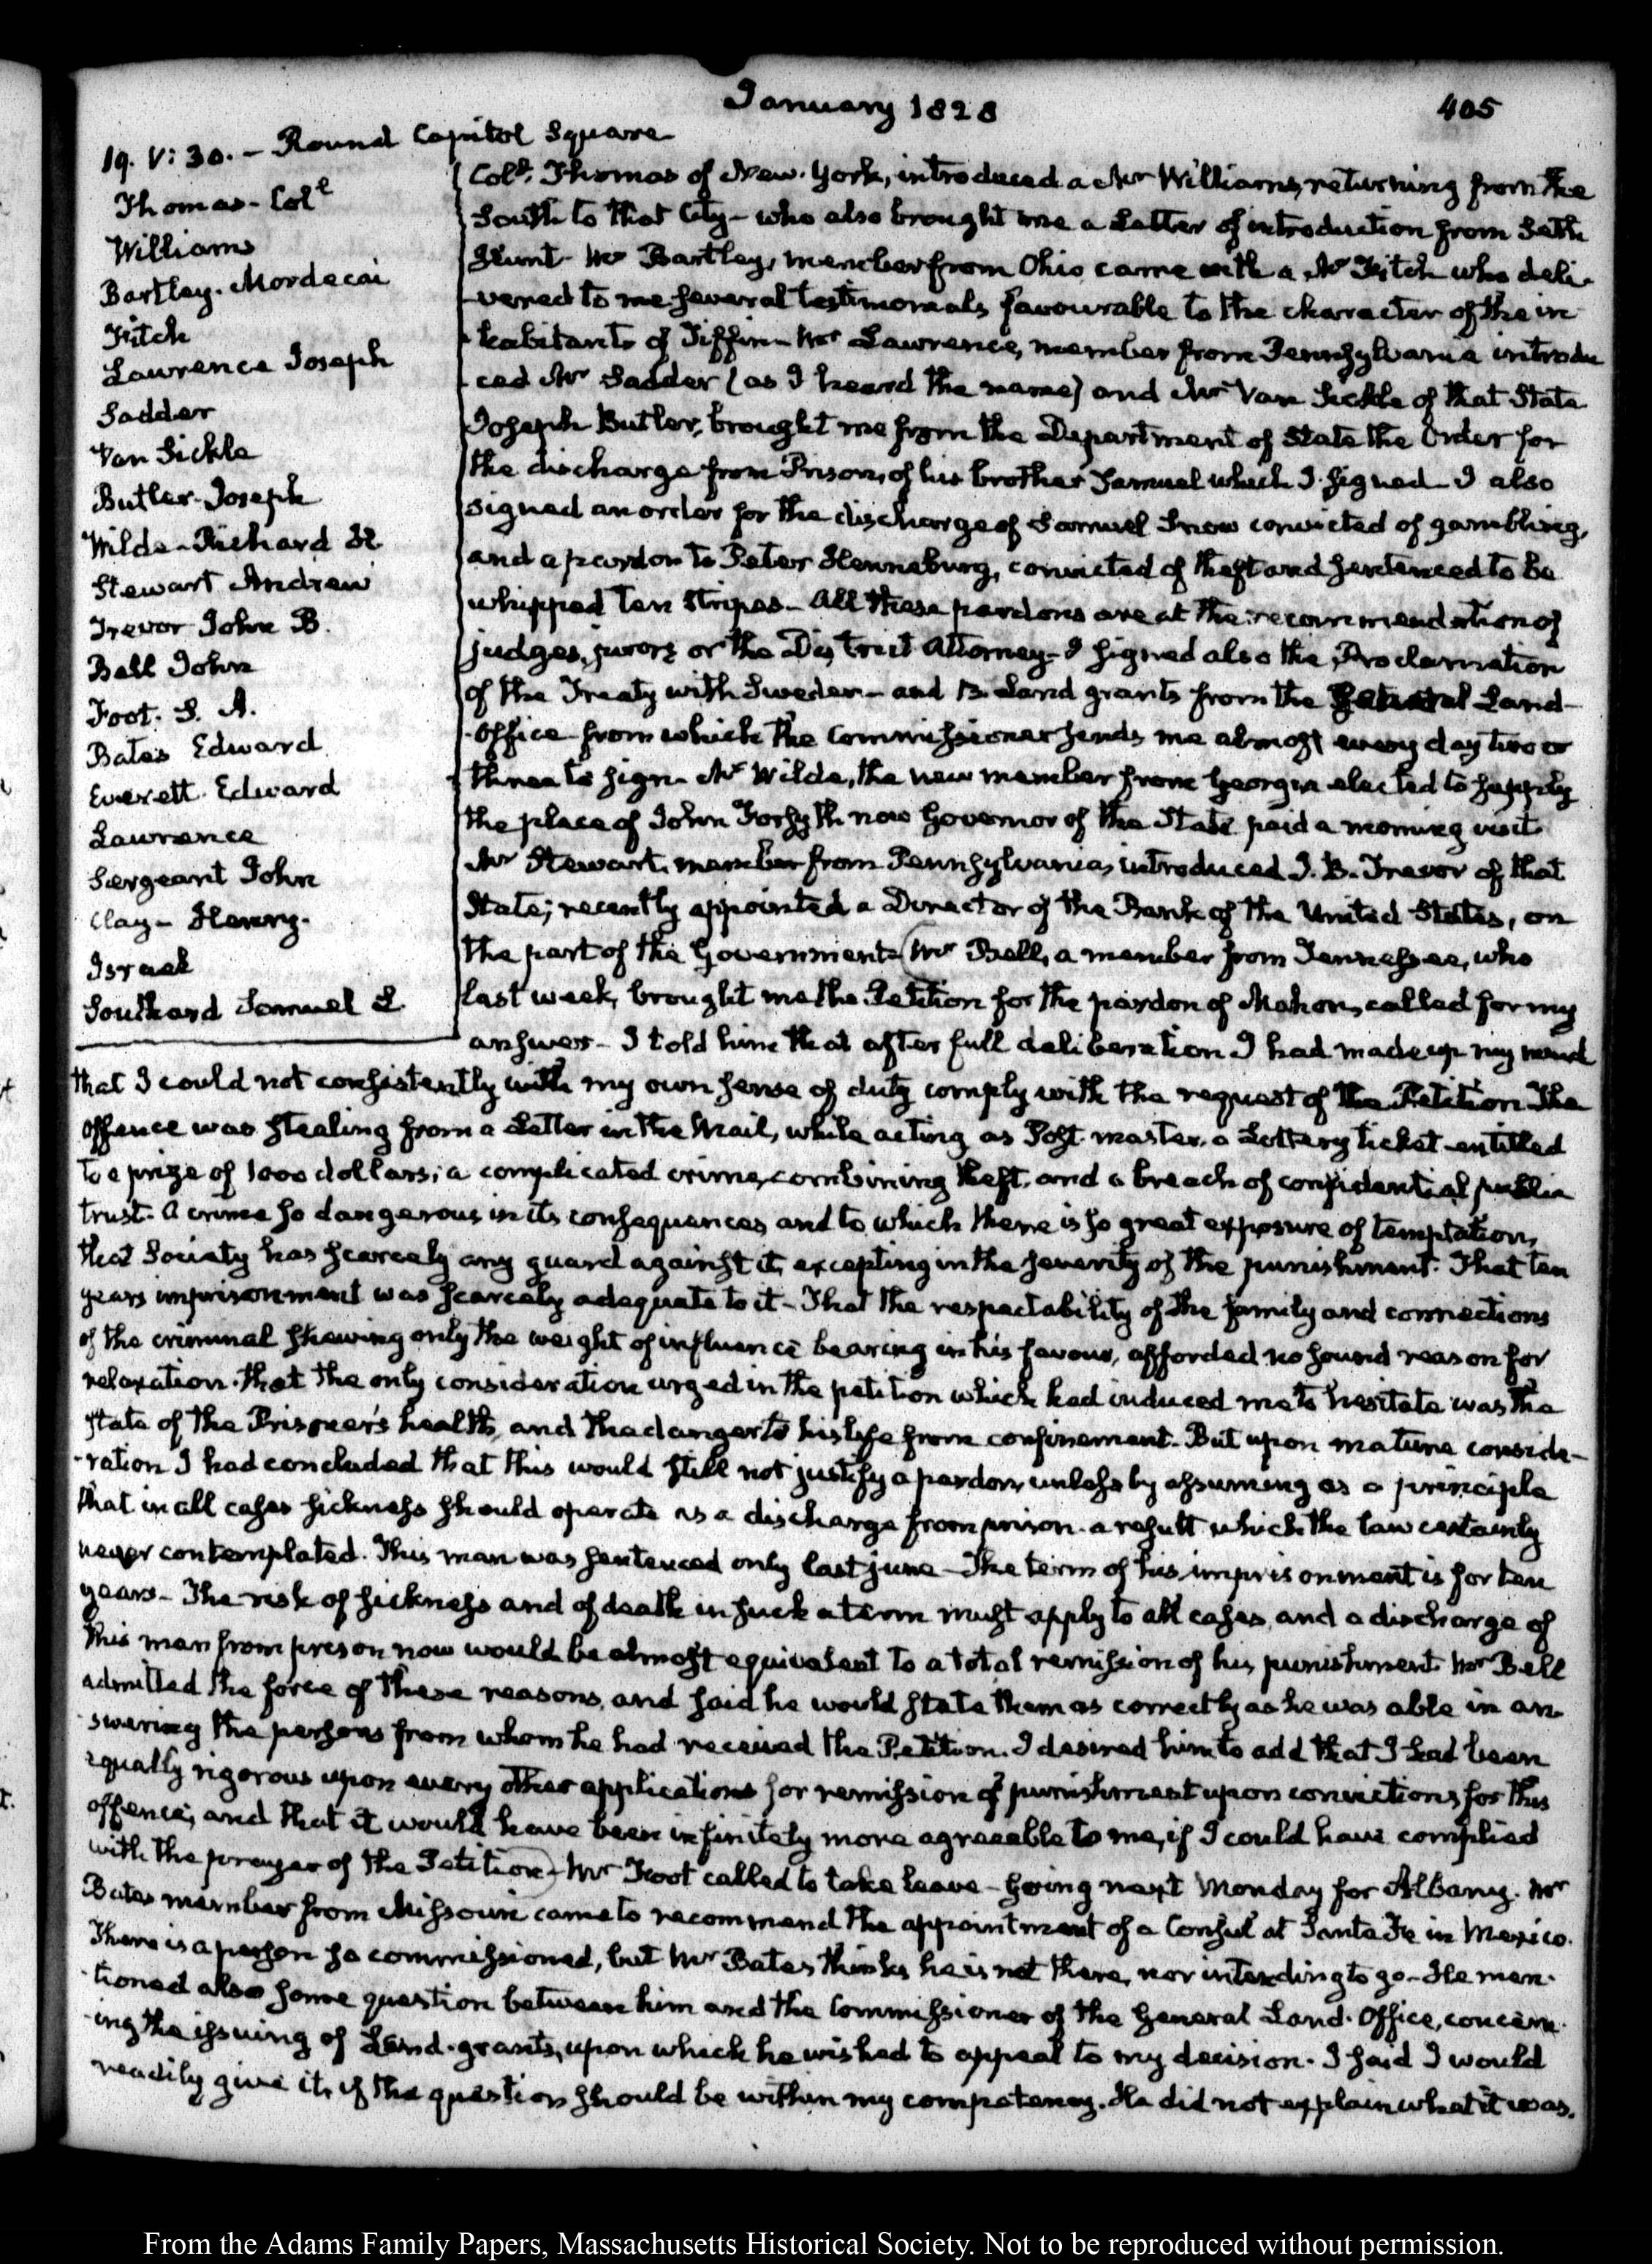 January 1828
405
19. V: 30. – Round Capitol Square
Thomas – Col.l
Williams
Bartley. Mordecai
Fitch
Lawrence Joseph
Sadder
Van Sickle
Butler Joseph
Wilde – Richard H
Stewart Andrew
Trevor John B.
Bell John
Foot. S. A.
Bates Edward
Everett. Edward
Lawrence
Sergeant John
Clay – Henry.
Israel
Southard Samuel L
Col.l Thomas of New-York, introduced a Mr Williams, returning from the
South to that City – who also brought me a Letter of introduction from Seth
Hunt. Mr Bartley, member from Ohio came with a Mr Fitch who deli-
-vered to me several testimonials favourable to the character of the in
-habitants of Tiffin – Mr Lawrence, member from Pennsylvania introdu
-ced Mr Sadder (as I heard the name) and Mr Van Sickle of that State
Joseph Butler, brought me from the Department of State the Order for
the discharge from Prison, of his brother Samuel which I signed – I also
signed an order for the discharge of Samuel Snow convicted of gambling,
and a pardon to Peter Henneburg, convicted of theft and sentenced to be
whipped ten stripes – All these pardons are at the recommendation of
judges, jurors or the District Attorney – I signed also the Proclamation
of the Treaty with Sweden – and 13 Land grants from the General Land-
-Office from which the Commissioner sends me almost every day two or
three to sign. Mr Wilde, the new member from Georgia elected to supply
the place of John Forsyth now Governor of the State paid a morning visit.
Mr Stewart. member from Pennsylvania, introduced J. B. Trevor of that
State; recently appointed a Director of the Bank of the United States, on
the part of the Government – (Mr Bell, a member from Tennessee, who
last week, brought me the Petition for the pardon of Mahon, called for my
answer – I told him that after full deliberation I had made up my mind
that I could not consistently with my own sense of duty comply with the request of the Petition The
Offence was stealing from a Letter in the Mail, while acting as Post master, a Lottery ticket entitled
to a prize of 1000 dollars; a complicated crime, combining theft, and a breach of confidential public
trust. A crime so dangerous in its consequences and to which there is so great exposure of temptation,
that Society has scarcely any guard against it, excepting in the severity of the punishment. That ten
years imprisonment was scarcely adequate to it – That the respectability of the family and connections
of the criminal shewing only the weight of influence bearing in his favour, afforded no sound reason for
relaxation. that the only consideration urged in the petition which had induced me to hesitate was the
state of the Prisoner's health, and the danger to his life from confinement. But upon mature conside-
-ration I had concluded that this would still not justify a pardon, unless by assuming as a principle
that in all cases sickness should operate as a discharge from prison. a result which the law certainly
never contemplated. This man was sentenced only last june – The term of his imprisonment is for ten
years – The risk of sickness and of death in such a term must apply to all cases, and a discharge of
this man from prison now would be almost equivalent to a total remission of his punishment. Mr Bell
admitted the force of these reasons, and said he would state them as correctly as he was able in an
swering the persons from whom he had received the Petition. I desired him to add that I had been
equally rigorous upon every other applications for remission of punishment upon convictions for this
offence; and that it would have been infinitely more agreeable to me, if I could have complied
with the prayer of the Petition) – Mr Foot called to take leave – going next Monday for Albany. Mr
Bates member from Missouri came to recommend the appointment of a Consul at Santa Fe in Mexico.
There is a person so commissioned, but Mr Bates thinks he is not there, nor intending to go – He men-
-tioned also some question between him and the Commissioner of the General Land-Office, concern-
-ing the issuing of Land-grants, upon which he wished to appeal to my decision. I said I would
readily give it, if the question should be within my competency. He did not explain what it was.
From the Adams Family Papers, Massachusetts Historical Society. Not to be reproduced without permission.